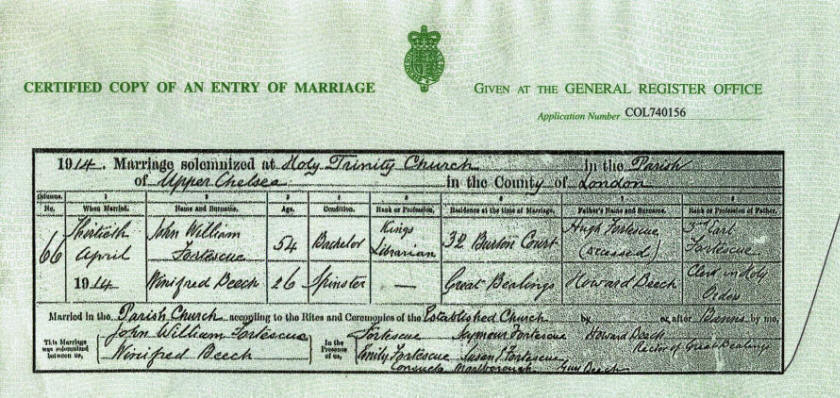 CERTIFIED COPY OF AN ENTRY OF MARRIAGE
GIVEN AT THE GENERAL REGISTER OFFICE
Application Number COL740156
1914. Marriage solemnized at Holy Trinity Church in the Parish
of Upper Chelsea in the County of London
No. When Married. Name and Surname. Age. Condition. Rank or Profession. Residence at the time of Marriage. Father's Name and Surname. Rank or Profession of Father.
66 Thirtieth April 1914
John William Fortescue 54 Bachelor Kings Librarian 32 Burton Court Hugh Fortescue (deceased) 3rd Earl Fortescue
Winifred Beech 26 Spinster — Great Bealings Howard Beech Clerk in Holy Orders
Married in the Parish Church according to the Rites and Ceremonies of the Established Church by or after Banns by me,
This Marriage was solemnized between us,
John William Fortescue
Winifred Beech
In the Presence of us,
Fortescue Seymour Fortescue Howard Beech
Emily Fortescue Susan J. Fortescue Rector of Great Bealings
Consuelo Marlborough. Guy Beech